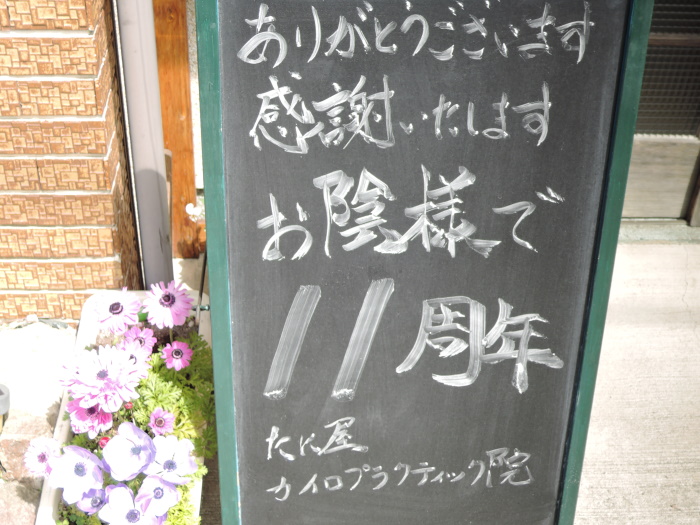 ありがとうございます
感謝いたします
お陰様で
11周年
たに屋
カイロプラクティック院